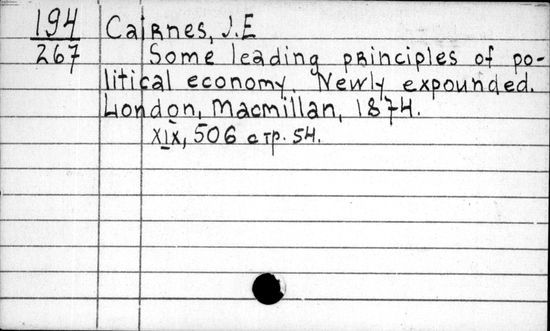 194 Cairnes, J.E
267 Some leading principles of po-
litical economy. Newly expounded.
London, Macmillan, 1874.
XIX, 506 стр. 54.